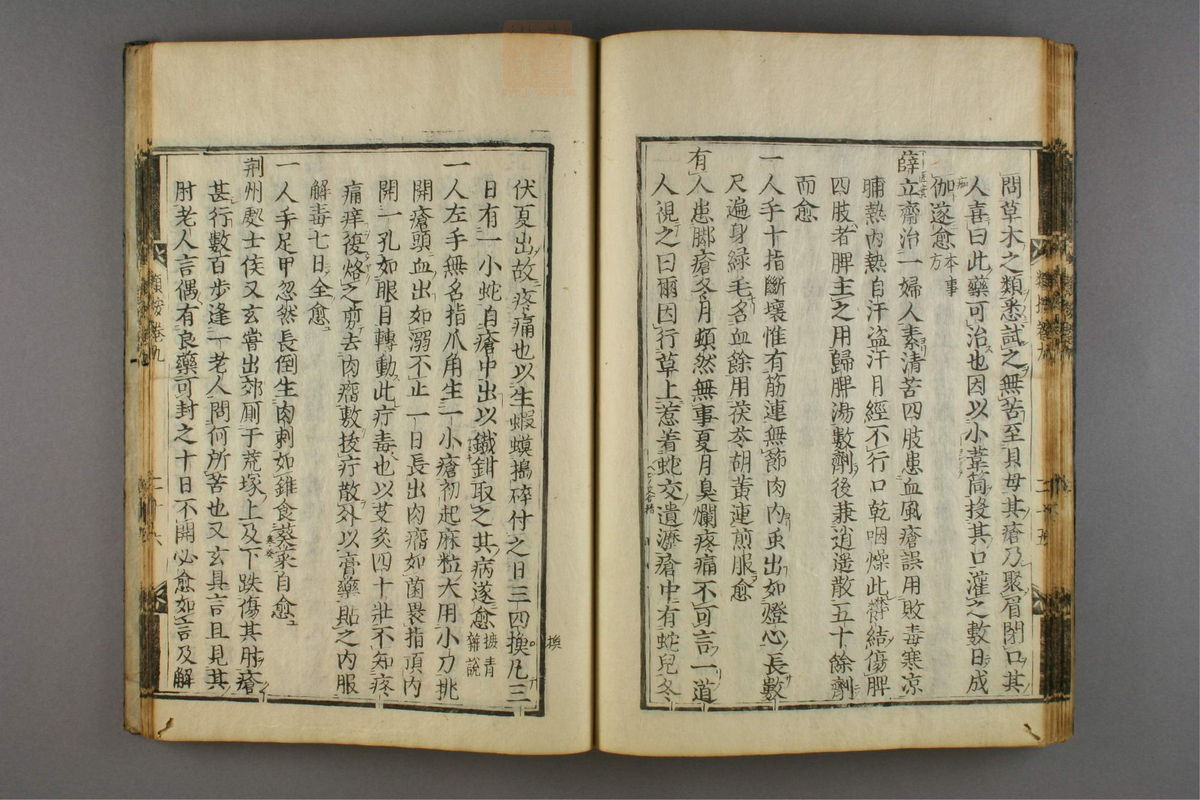 問草木之類悉試之無苦至貝母其瘡乃聚眉閉口其
人喜曰此藥可治也因以小葦筒投其口灌之數日成
痂遂愈本事方
薛立齋治一婦人素清苦四肢患血風瘡誤用敗毒寒凉
晡熱內熱自汗盜汗月經不行口乾咽燥此鬱結傷脾
四肢者脾主之用歸脾湯數劑後兼逍遥散五十餘劑
而愈
一人手十指斷壞惟有筋連無節肉內虫出如燈心長數
尺遍身綠毛名血餘用茯苓胡黃連煎服愈
有人患脚瘡冬月頓然無事夏月臭爛疼痛不可言一道
人視之曰爾因行草上惹着蛇交遺瀝瘡中有蛇兒冬
伏夏出故疼痛也以生蝦蟆搗碎付之日三四換凡三
日有一小蛇自瘡中出以鐵鉗取之其病遂愈摭青雜說
一人左手無名指爪角生一小瘡初起麻粒大用小刀挑
開瘡頭血出如溺不止一日長出肉瘤如菌畏指頂內
開一孔如眼目轉動此疔毒也以艾灸四十壯不知疼
痛痒復烙之剪去肉瘤敷拔疔散外以膏藥貼之內服
解毒七日全愈
一人手足甲忽然長倒生肉刺如錐食葵菜自愈
荆州處士侯又玄嘗出郊厠于荒塚上及下跌傷其肘瘡
甚行數百步逢一老人問何所苦也又玄具言且見其
肘老人言偶有良藥可封之十日不開必愈如言及解
類按卷九
二十五
類按卷九
二十六
換